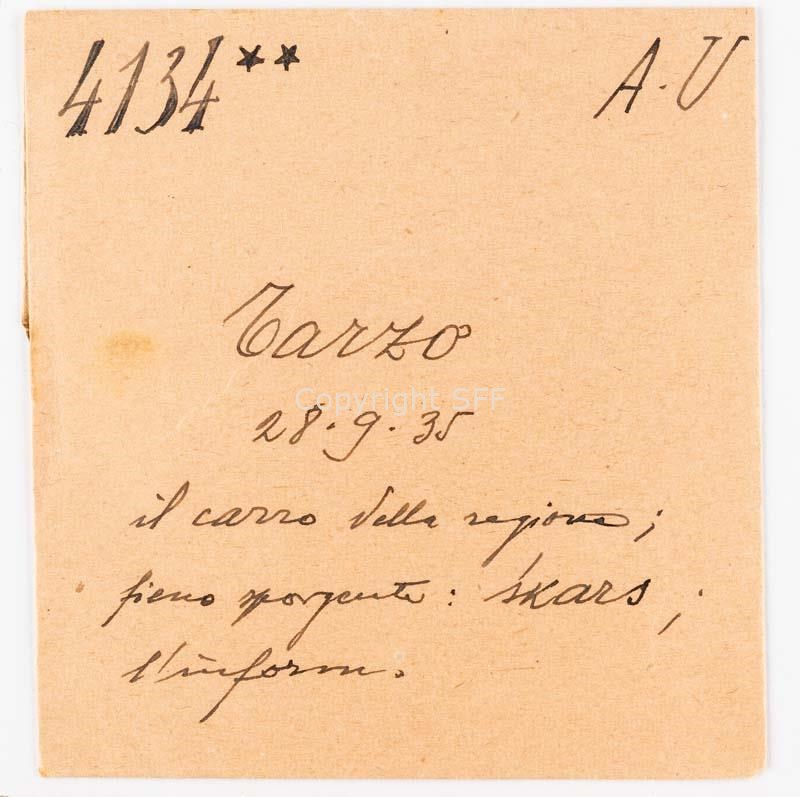 4134** A.U
Tarzo
Copyright SFF
28.9.35
il carro della regione;
fieno sporgente: škars;
l'inform.